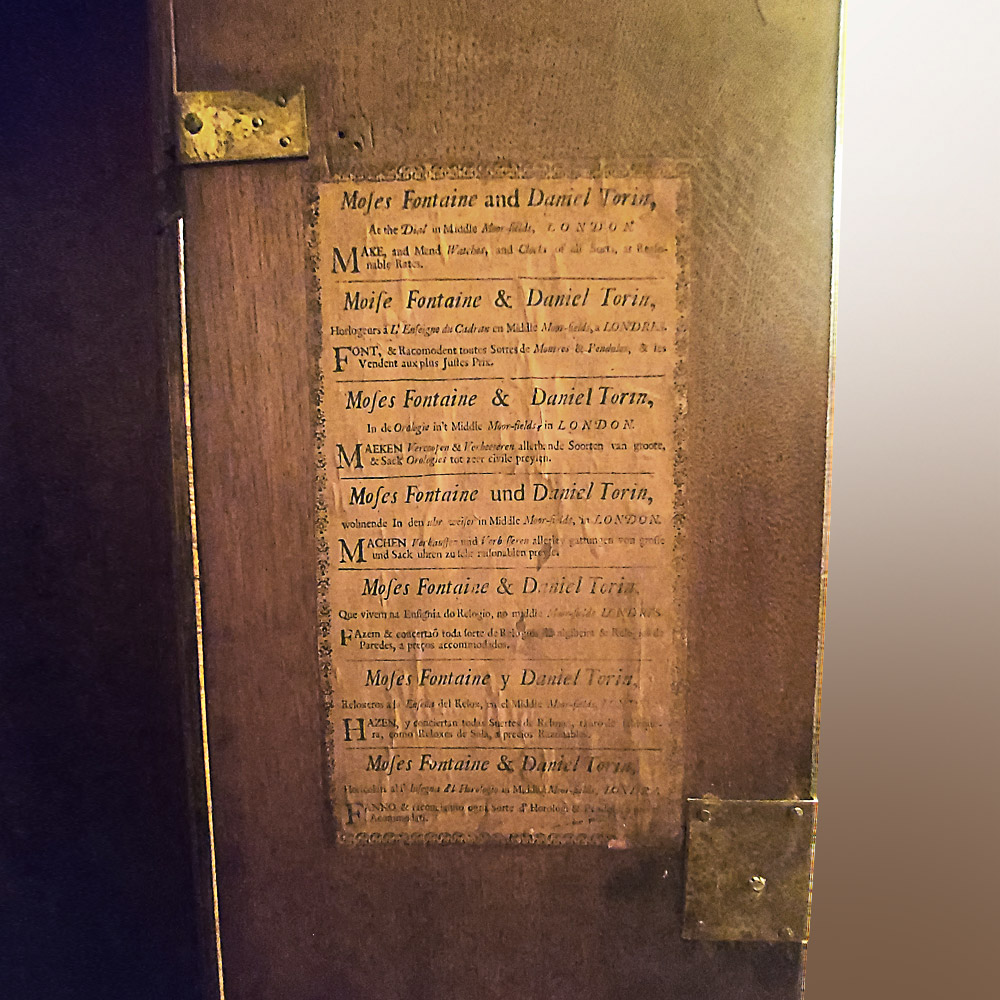 Moſes Fontaine and Daniel Torin,
At the Dial in Middle Moor-fields, LONDON
MAKE, and Mend Watches, and Clocks of all Sorts, at Reaſo-
nable Rates.
Moiſe Fontaine & Daniel Torin,
Horlogeurs á L'Enſeigne du Cadran en Middle Moor-fields, a LONDRES.
FONT, & Racomodent toutes Sortes de Montres & Pendules, & les
Vendent aux plus Juſtes Prix.
Moſes Fontaine & Daniel Torin,
In de Orologie in't Middle Moor-fields, in LONDON.
MAEKEN Vercoopen & Verbeeteren allerhande Soorten van groote,
& Sack Orologies tot zeer civile preyſen.
Moſes Fontaine und Daniel Torin,
wohnende In den uhr weiſer in Middle Moor-fields, in LONDON.
MACHEN Verkauffen und Verbeſſeren allerley gattungen von groſſe
und Sack uhren zu ſehr raiſonablen preyſe.
Moſes Fontaine & Daniel Torin,
Que vivem na Enſignia do Relogio, no middle Moor-fields LONDRES.
FAzem & concertaõ toda ſorte de Relogios de algibeira & Relogios de
Paredes, a preços accommodados.
Moſes Fontaine y Daniel Torin,
Reloxeros a la Enſeña del Relox, en el Middle Moor-fields,
HAZEN, y conciertan todas Suertes de Reloxes,
ra, como Reloxes de Sala, a precios Razonables.
Moſes Fontaine & Daniel Torin,
all' Inſegna d'l Horologio in Middle Moor-fields,
FANNO & racommodano ogni ſorte d'Horologi &
Accommodati.